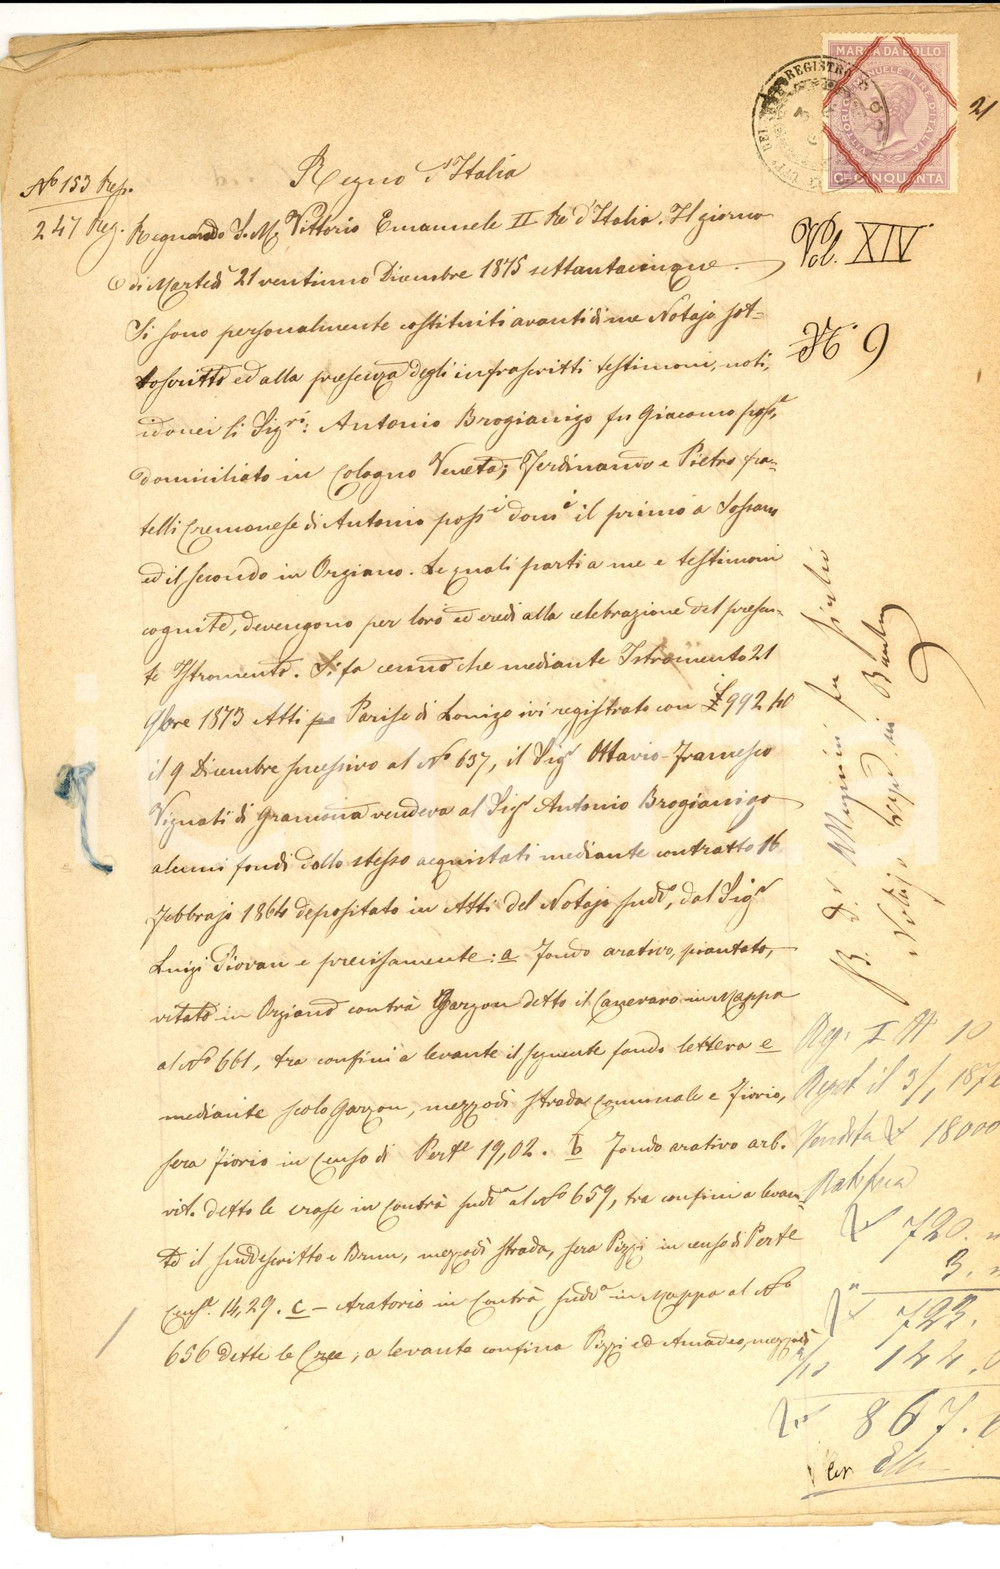 MARCA DA BOLLO
VITTORIO EMANUELE II RE D'ITALIA
C. CINQUANTA
REGISTRO
21
Regno d'Italia
No 153 Rep.
247 Reg.
Regnando S. M. Vittorio Emanuele II Re d'Italia. Il giorno
di Martedì 21 ventiuno Dicembre 1875 settantacinque.
Si sono personalmente costituiti avanti di me Notajo sot-
toscritto ed alla presenza degli infrascritti testimoni, noti,
idonei li Sigri: Antonio Brogianigo fu Giacomo posse
domiciliato in Cologna Veneta; Ferdinando e Pietro fra-
telli Cremonese di Antonio possi domi il primo a Sossano
ed il secondo in Orgiano. Le quali parti a me e testimoni
cognite, devengono per loro ed eredi alla celebrazione del presen-
te Istromento. Si fa cenno che mediante Istromento 21
9bre 1873 Atti Parise di Lonigo ivi registrato con £ 992.40
il 9 Dicembre successivo al No 637, il Sigr Ottavio-Francesco
Vignati di Gramona vendeva al Sigr Antonio Brogianigo
alcuni fondi dallo stesso acquistati mediante contratto 16
Febbrajo 1864 depositato in Atti del Notajo sudd, dal Sigr
Luigi Piovan e precisamente: a Fondo arativo, piantato,
vitato in Orgiano contrà Garzon detto il Canevaro in Mappa
al No 661, tra confini a levante il seguente fondo lettera e
mediante scolo Garzon, mezzodì strada Comunale e Fiorio,
sera Fiorio in Censo di Perte 19,02. b Fondo arativo arb.
vit. detto le crose in Contrà sudda al No 659, tra confini a levan-
te il suddescritto e Brun, mezzodì strada, sera Pizzi in censo di Perte
Cense 14,29. c - Aratorio in Contrà sudda in Mappa al No
656 dette le Cree, a levante confina Pizzi ed Amadeo, mezzodì
Vol. XIV
No 9
Notajo
Rep. I No 10
Regist. il 3/1 187
Vendita £ 18000
£ 720.
3.
£ 723.
2/10 144.
£ 867.